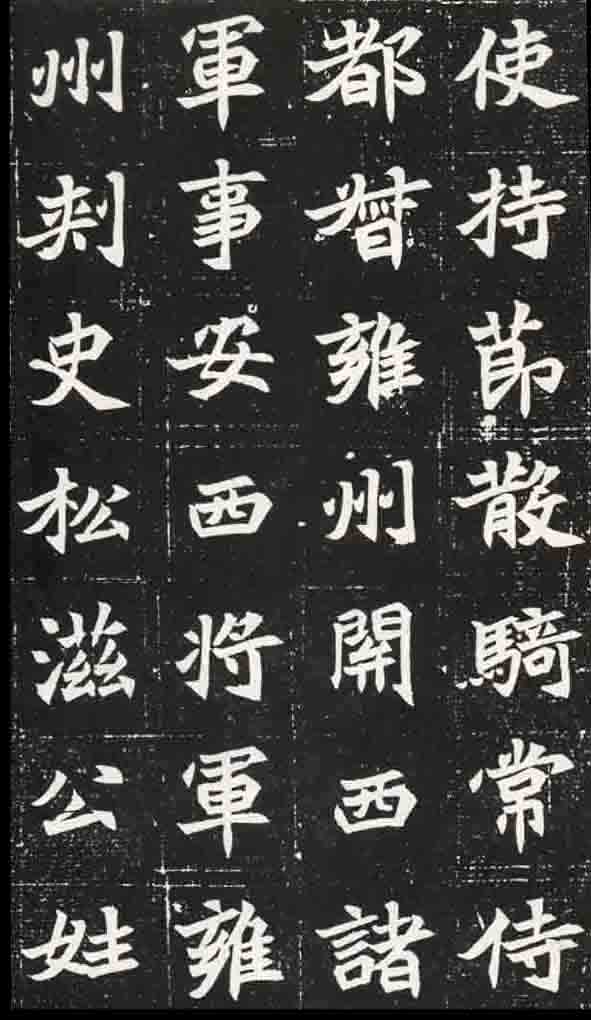 使持節散騎常侍
都督雍州関西諸
軍事安西将軍雍
州刺史松滋公姓